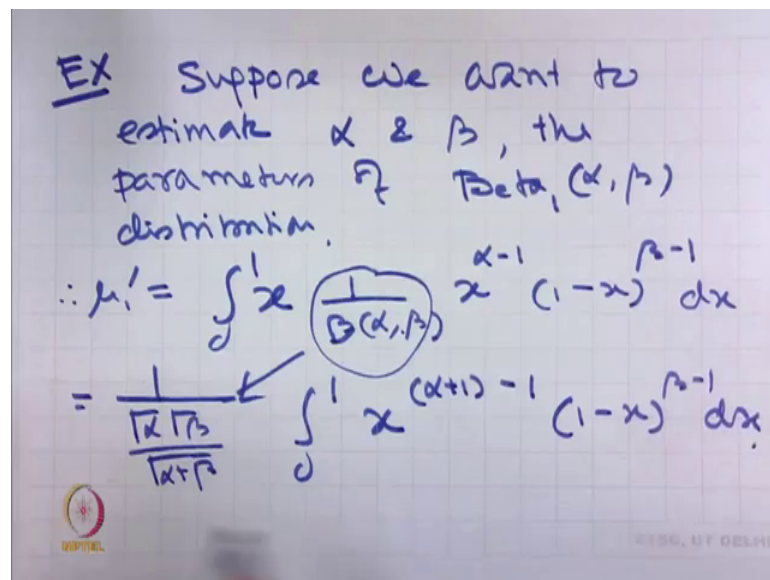 EX Suppose we want to
estimate α & β, the
parameters of Beta₁(α, β)
distribution.
∴ μ₁′ = ∫₀¹ x 1/B(α,β) x^(α-1) (1-x)^(β-1) dx
= 1/(Γα Γβ/Γα+β) ∫₀¹ x^((α+1)-1) (1-x)^(β-1) dx.
NPTEL